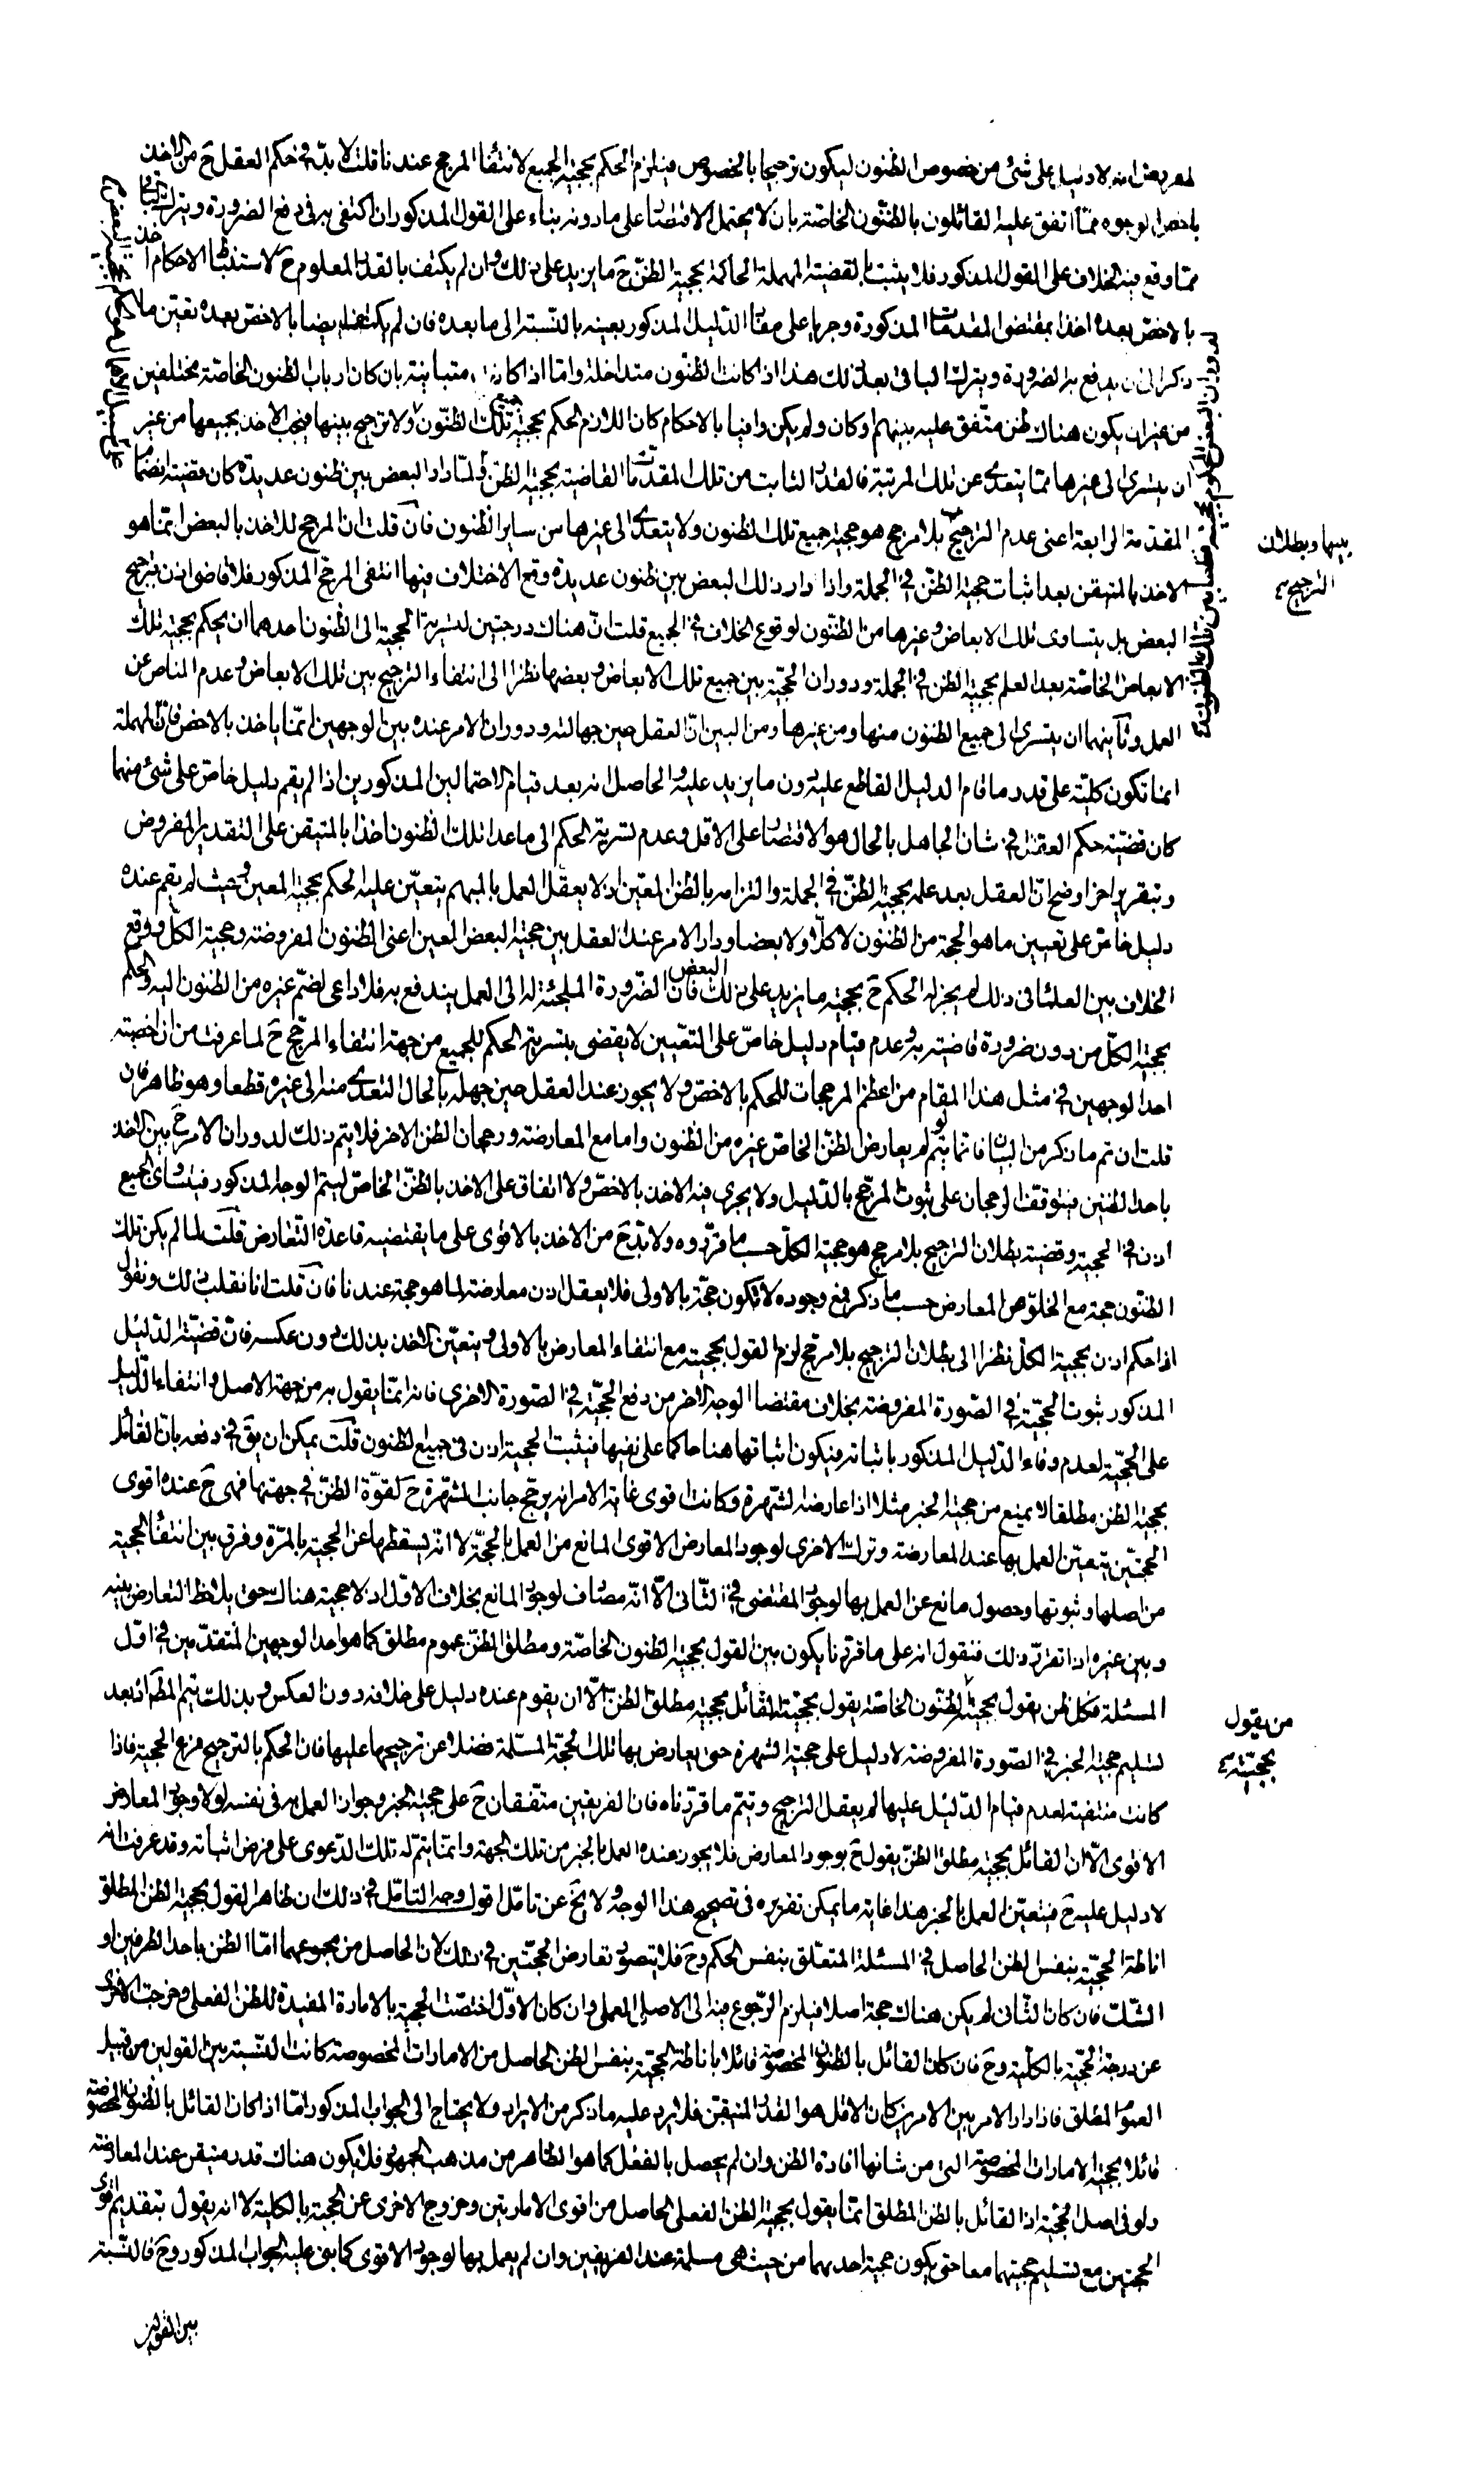 لا دليل على شئ من خصوص الظنون ليكون ترجيحا بالخصوص فيلزم الحكم بحجية الجميع لانتفاء المرجح عندنا قلت لا بد في حكم العقل ح من الاخذ
باخص الوجوه مما اتفق عليه القائلون بالظنون الخاصة بان لا يحتمل الاقتصار على ما دونه بناء على القول المذكور ان اكتفى به في دفع الضرورة ويترك الباقي
مما وقع فيه الخلاف على القول المذكور فلا يثبت بالقضية المهملة الحاكمة بحجية الظن ح ما يزيد على ذلك وان لم يكتف بالقدر المعلوم ح لاستنباط الاحكام اخذ
بالاخص بعده اخذا بمقتضى المقدمات المذكورة وجريا على مفاد الدليل المذكور بعينه بالنسبة الى ما بعده فان لم يكتف به ايضا بالاخص بعده تعين ما
ذكر الى ان يدفع به الضرورة ويترك الباقي بعد ذلك هذا اذا كانت الظنون متداخلة واما اذا كانت متباينة بان كان ارباب الظنون الخاصة مختلفين
من غير ان يكون هناك ظن متفق عليه بينهم او كان ولم يكن وافيا بالاحكام كان اللازم الحكم بحجية تلك الظنون ولا ترجيح بينها فيجب الاخذ بجميعها من غير
ان يسرى الى غيرها مما يتعدى عن تلك المرتبة فالقدر الثابت من تلك المقدمات القاضية بحجية الظن ولما دار البعض بين ظنون عديدة كان قضية انضمام
المقدمة الرابعة اعنى عدم الترجيح بلا مرجح هو حجية جميع تلك الظنون ولا يتعدى الى غيرها من ساير الظنون فان قلت ان المرجح للاخذ بالبعض انما هو
بينها وبطلان
الترجيح
الاخذ بالمتيقن بعد اثبات حجية الظن في الجملة واذا دار ذلك البعض بين ظنون عديدة وقع الاختلاف فيها انتفى المرجح المذكور فلا قاضى اذن بترجيح
البعض بل يتساوى تلك الابعاض وغيرها من الظنون لوقوع الخلاف في الجميع قلت ان هناك درجتين لتسرية الحجية الى الظنون احدهما ان يحكم بحجية تلك
الابعاض الخاصة بعد العلم بحجية الظن في الجملة ودوران الحجية بين جميع تلك الابعاض وبعضها نظرا الى انتفاء الترجيح بين تلك الابعاض وعدم المناص عن
العمل وثانيهما ان يتسرى الى جميع الظنون منها ومن غيرها ومن البين ان العقل حين جهالته ودوران الامر عنده بين الوجهين انما ياخذ بالاخص فان المهملة
انما تكون كلية على قدر ما قام الدليل القاطع عليه دون ما يزيد عليه والحاصل انه بعد قيام الاحتمالين المذكورين اذا لم يقم دليل خاص على شئ منهما
كان قضية حكم العقل في شان الجاهل بالحال هو الاقتصار على الاقل وعدم تسرية الحكم الى ما عدا تلك الظنون اخذا بالمتيقن على التقدير المفروض
وبتقرير اخر اوضح ان العقل بعد علمه بحجية الظن في الجملة والتزامه بالظن المعين اذ لا يعقل العمل بالمبهم يتعين عليه الحكم بحجية المعين وحيث لم يقم عنده
دليل خاص على تعيين ما هو الحجة من الظنون لا كلا ولا بعضا ودار الامر عند العقل بين حجية البعض المعين اعنى الظنون المفروضة وحجية الكل ووقع
الخلاف بين العلماء في ذلك لم يجز له الحكم ح بحجية ما يزيد على ذلك البعض فان الضرورة الملجئة له الى العمل يندفع به فلا داعى لضم غيره من الظنون اليه والحكم
بحجية الكل من دون ضرورة قاضية به وعدم قيام دليل خاص على التعيين لا يقضى بتسرية الحكم للجميع من جهة انتفاء المرجح ح لما عرفت من ان اخصية
احد الوجهين في مثل هذا المقام من اعظم المرجحات للحكم بالاخص ولا يجوز عند العقل حين جهله بالحال التعدى منه الى غيره قطعا وهو ظاهر فان
قلت ان تم ما ذكر من البيان فانما يتم لو لم يعارض الظن الخاص غيره من الظنون واما مع المعارضة ورجحان الظن الاخر فلا يتم ذلك لدوران الامر ح بين الاخذ
باحد الظنين فيتوقف الرجحان على ثبوت المرجح بالدليل ولا يجرى فيه الاخذ بالاخص ولا اتفاق على الاخذ بالظن الخاص ليتم الوجه المذكور فيتساوى الجميع
اذن في الحجية وقضية بطلان الترجيح بلا مرجح هو حجية الكل حسب ما قرروه ولا بد ح من الاخذ بالاقوى على ما يقتضيه قاعدة التعارض قلت لما لم يكن تلك
الظنون حجة مع الخلو عن المعارض حسب ما ذكر فمع وجوده لا تكون حجة بالاولى فلا يعقل اذن معارضة لما هو حجة عندنا فان قلت انا نقلب ذلك ونقول
اذا حكم اذن بحجية الكل نظرا الى بطلان الترجيح بلا مرجح لزم القول بحجيته مع انتفاء المعارض بالاولى ويتعين الاخذ بذلك دون عكسه فان قضية الدليل
المذكور ثبوت الحجية في الصورة المفروضة بخلاف مقتضا الوجه الاخر من دفع الحجية في الصورة الاخرى فانه انما يقول به من جهة الاصل وانتفاء الدليل
على الحجية لعدم وفاء الدليل المذكور باثباته فيكون اثباتها هنا حاكما على نفيها فيثبت الحجية اذن في جميع الظنون قلت يمكن ان يق في دفعه بان القائل
بحجية الظن مطلقا لا يمنع من حجية الخبر مثلا اذا عارضه الشهرة وكانت اقوى غاية الامر انه يرجح جانب الشهرة ح لقوة الظن في جهتها فهى ح عنده اقوى
الحجتين يتعين العمل بها عند المعارضة وترك الاخرى لوجود المعارض الاقوى المانع من العمل بالحجة لا انه يسقطها عن الحجية بالمرة وفرق بين انتفاء الحجية
من اصلها وثبوتها وحصول مانع عن العمل بها لوجود المقتضى في الثانى الا انه مصادف لوجود المانع بخلاف الاول اذ لا حجية هناك حتى يلاحظ التعارض بينه
وبين غيره اذا تقرر ذلك فنقول انه على ما قررنا يكون بين القول بحجية الظنون الخاصة ومطلق الظن عموم مطلق كما هو احد الوجهين المتقدمين في اول
المسئلة فكل من يقول بحجية الظنون الخاصة يقول بحجيتها القائل بحجية مطلق الظن الا ان يقوم عنده دليل على خلافه دون العكس وبذلك يتم المط اذ بعد
من يقول
بحجيته
تسليم حجية الخبر في الصورة المفروضة لا دليل على حجية الشهرة حتى يعارض بها تلك الحجة المسلمة فضلا عن ترجيحها عليها فان الحكم بالترجيح فرع الحجية فاذا
كانت منتفية لعدم قيام الدليل عليها لم يعقل الترجيح ويتم ما قررناه فان الفريقين متفقان ح على حجية الخبر وجواز العمل به في نفسه لولا وجود المعارض
الاقوى الا ان القائل بحجية مطلق الظن يقول ح بوجود المعارض فلا يجوز عنده العمل بالخبر من تلك الجهة وانما يتم له تلك الدعوى على فرض اثباته وقد عرفت انه
لا دليل عليه ح فيتعين العمل بالخبر هذا غاية ما يمكن تقريره في تصحيح هذا الوجه ولا يخ عن تامل اقول وجه التامل في ذلك ان ظاهر القول بحجية الظن المطلق
اناطة الحجية بنفس الظن الحاصل في المسئلة المتعلق بنفس الحكم وح فلا يتصور تعارض الحجتين في ذلك لان الحاصل من مجموعهما اما الظن باحد الطرفين او
الشك فان كان الثانى لم يكن هناك حجة اصلا فيلزم الرجوع فيه الى الاصل العملى وان كان الاول اختصت الحجية بالامارة المفيدة للظن الفعلى وخرجت الاخرى
عن درجة الحجية بالكلية وح فان كان القائل بالظنون المخصوصة قائلا باناطة الحجية بنفس الظن الحاصل من الامارات المخصوصة كانت النسبة بين القولين من قبيل
العموم المطلق فاذا دار الامر بين الامرين كان الاقل هو القدر المتيقن فلا يرد عليه ما ذكر من الايراد ولا يحتاج الى الجواب المذكور اما اذا كان القائل بالظنون المخصوصة
قائلا بحجية الامارات المخصوصة التى من شانها افادة الظن وان لم يحصل بالفعل كما هو الظاهر من مذهب الجمهور فلا يكون هناك قدر متيقن عند المعارضة
ولو في اصل الحجية اذ القائل بالظن المطلق انما يقول بحجية الظن الفعلى الحاصل من اقوى الامارتين وخروج الاخرى عن الحجية بالكلية لا انه يقول بتقديم اقوى
الحجتين مع تسليم حجيتهما معا حتى يكون حجية احدهما من حيث هى مسلمة عند الفريقين وان لم يعمل بها لوجود الاقوى كما بنى عليه الجواب المذكور وح فالنسبة
بين القولين